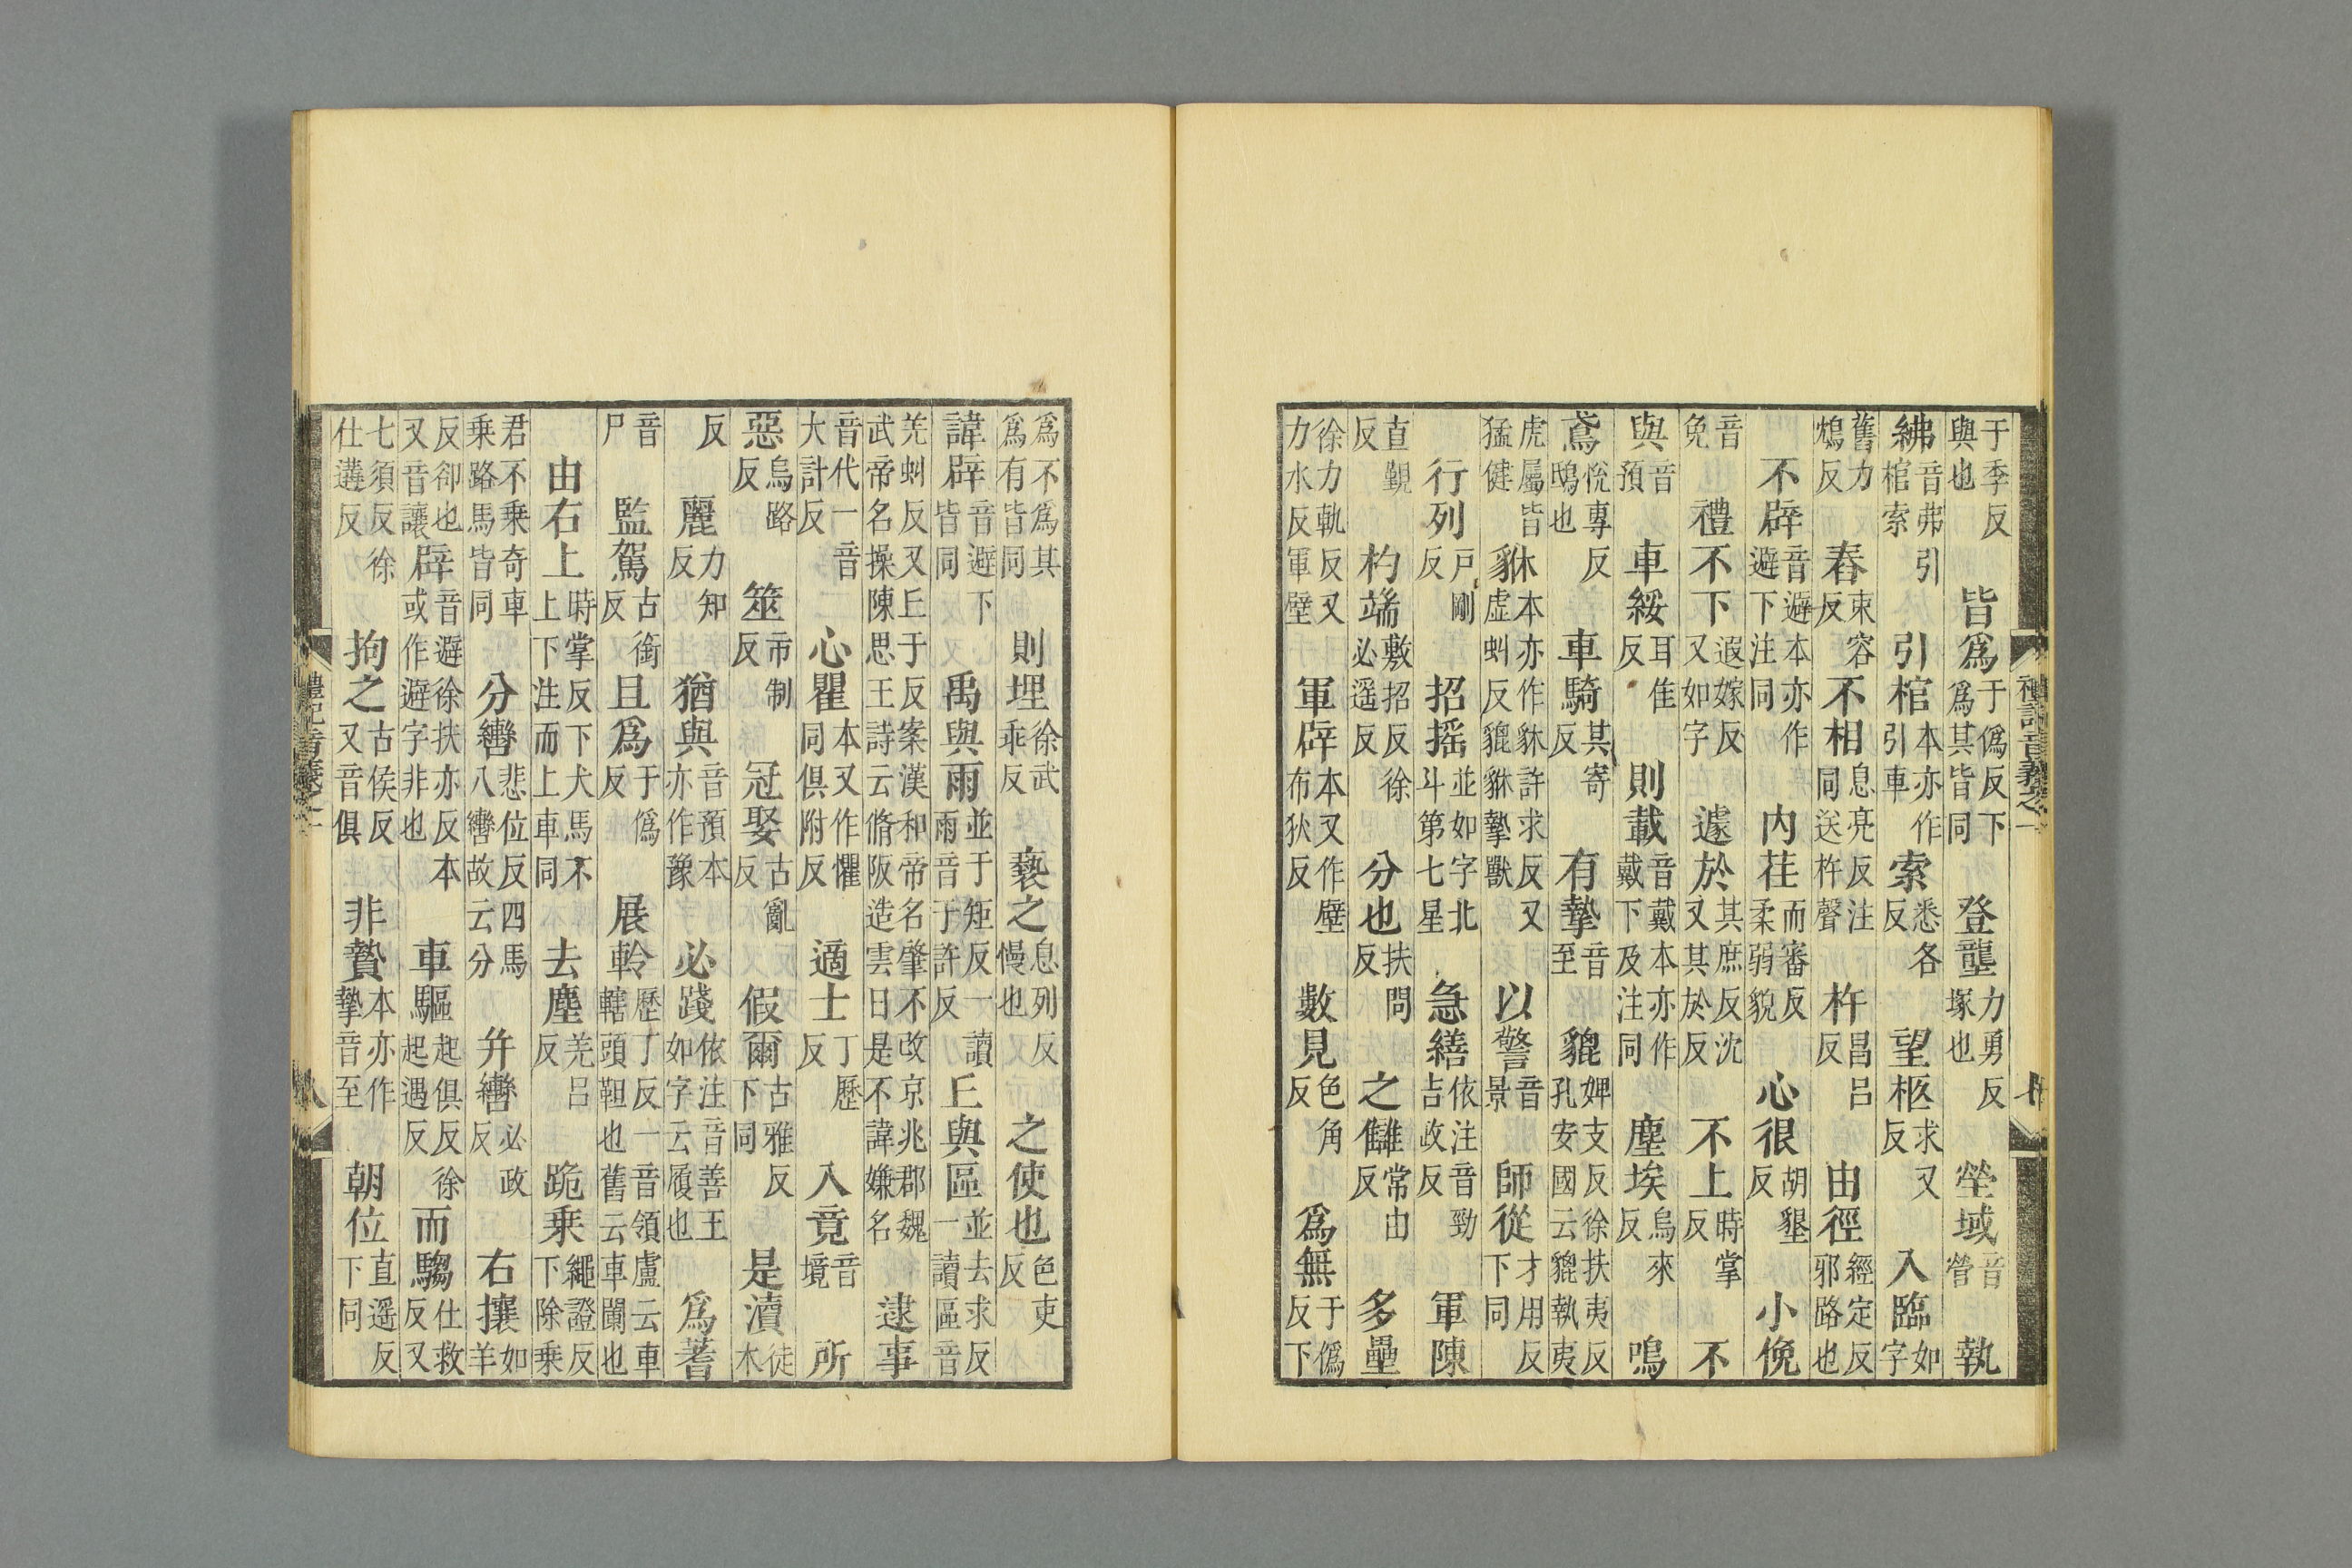 于季反與也皆爲于僞反下爲其皆同登壟力勇反塚也塋域音營執
紼音弗引棺索引棺本亦作引車索悉各反望柩求又反入臨如字
舊力鴆反舂束容反不相息亮反注同送杵聲杵昌呂反由徑經定反邪路也
不辟音避本亦作避下注同内荏而審反柔弱貌心很胡墾反小俛
音免禮不下遐嫁反又如字遽於其庶反沈又其於反不上時掌反不
與音預車綏耳隹反則載音戴本亦作戴下及注同塵埃烏來反鳴
鳶悅專反鴟也車騎其寄反有摯音至貔婢支反徐扶夷反孔安國云貔執夷
虎屬皆猛健貅本亦作貅許求反又虛蚪反貔貅摯獸以警音景師從才用反下同
行列戸剛反招摇並如字北斗第七星急繕依注音勁吉政反軍陳
直覲反杓端敷招反徐必遥反分也扶問反之讎常由反多壘
徐力軌反又力水反軍壁軍辟本又作壁布狄反數見色角反爲無于僞反下
爲不爲其爲有皆同則埋徐武乖反褻之息列反慢也之使也色吏反
諱辟音避下皆同禹與雨並于矩反一讀雨音于許反丘與區並去求反一讀區音
羌蚪反又丘于反案漢和帝名肇不改京兆郡魏武帝名操陳思王詩云脩阪造雲日是不諱嫌名逮事
音代一音大計反心瞿本又作懼同俱附反適士丁歷反入竟音境所
惡烏路反筮市制反冠娶古亂反假爾古雅反下同是瀆徒木
反麗力知反猶與音預本亦作豫必踐依注音善王如字云履也爲蓍
音尸監駕古銜反且爲于僞反展軨歷丁反一音領盧云車轄頭靼也舊云車闌也
由右上時掌反下犬馬不上上下注而上車同去塵羌呂反跪乘繩證反下除乘
君不乘奇車乘路馬皆同分轡悲位反四馬八轡故云分并轡必政反右攘如羊
反卻也又音讓辟音避徐扶亦反本或作避字非也車驅起俱反徐起遇反而騶仕救反又
七須反徐仕遘反拘之古侯反又音俱非贄本亦作摯音至朝位直遥反下同
禮記音義之一
禮記音義之一
八